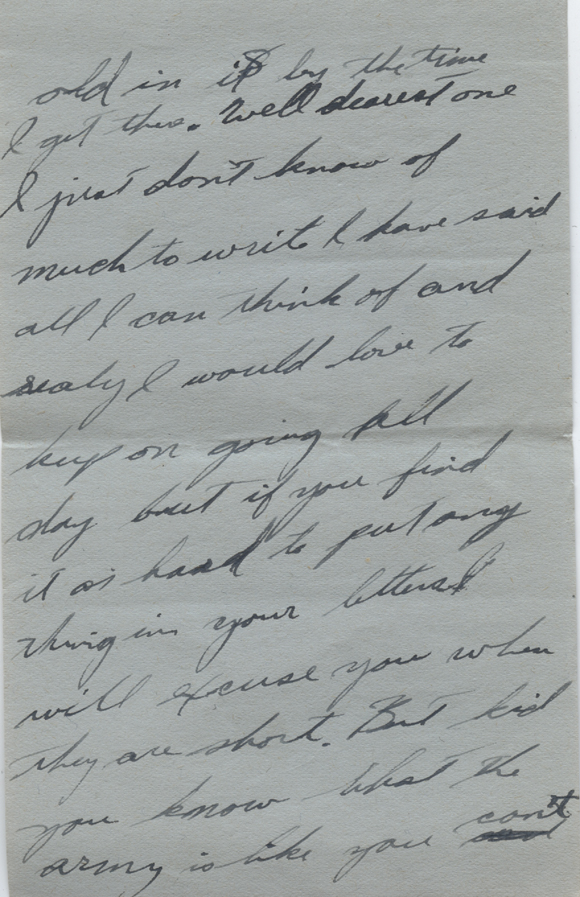 old in it by the time
I get there. Well dearest one
I just don't know of
much to write I have said
all I can think of and
realy I would love to
keep on going till
day but if you find
it as hard to put any
thing in your letters I
will excuse you when
they are short. But kid
you know what the
army is like you can't